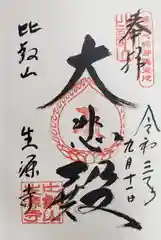 奉拝
令和三年
九月十一日
大悲殿
比叡山
生源寺